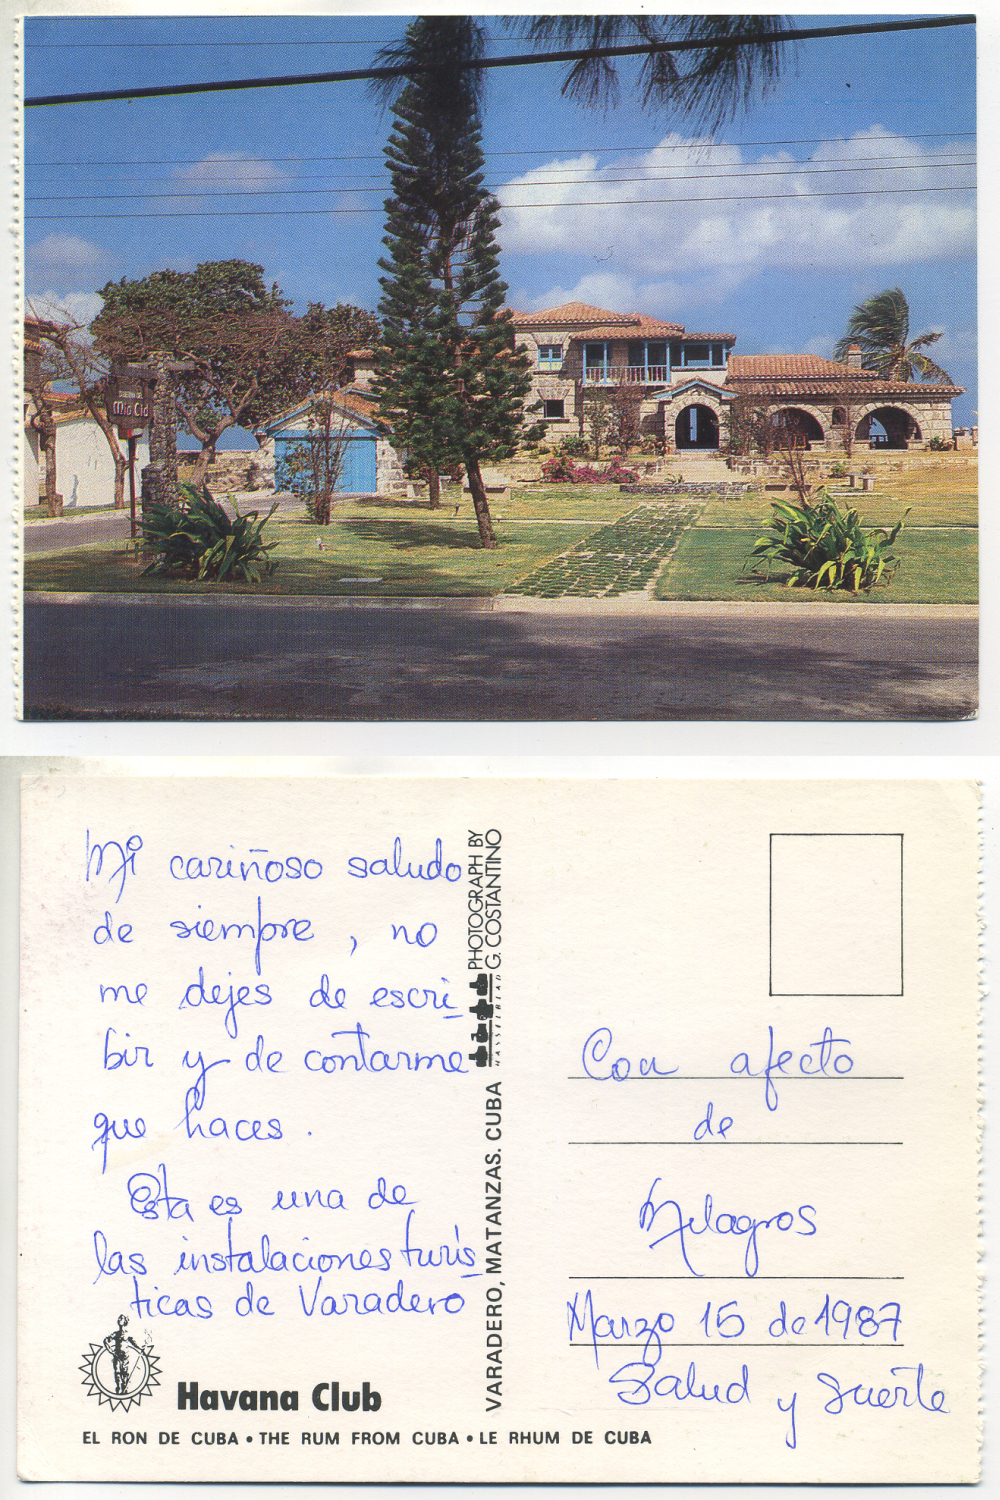 Mio Cid
Mi cariñoso saludo
de siempre, no
me dejes de escri-
bir y de contarme
que haces.
Esta es una de
las instalaciones turís-
ticas de Varadero
Havana Club
EL RON DE CUBA • THE RUM FROM CUBA • LE RHUM DE CUBA
VARADERO, MATANZAS. CUBA
HASSELBLAD
PHOTOGRAPH BY
G. COSTANTINO
Con afecto
de
Milagros
Marzo 15 de 1987
Salud y suerte